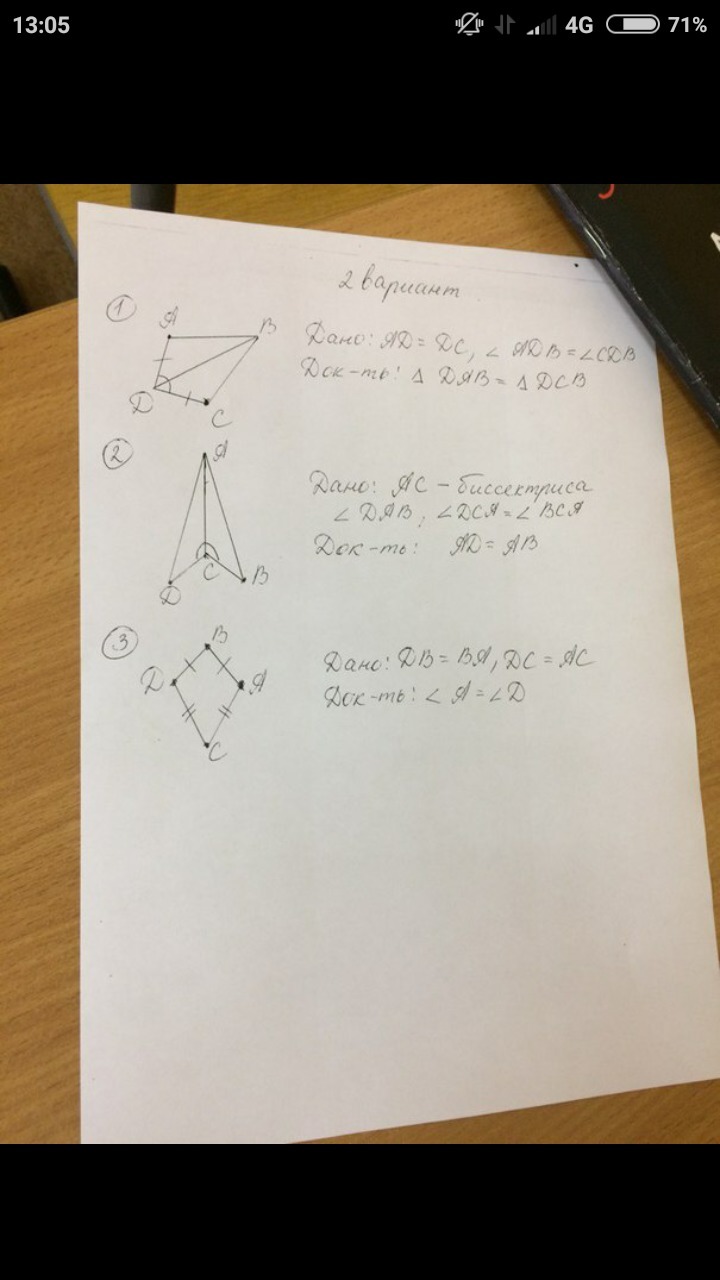 13:05
4G
71%
2 вариант
1
A
B
D
C
Дано: AD = DC, ∠ ADB = ∠CDB
Док-ть: Δ DAB = Δ DCB
2
A
C
D
B
Дано: AC - биссектриса
∠ DAB, ∠DCA = ∠ BCA
Док-ть: AD = AB
3
B
D
A
C
Дано: DB = BA, DC = AC
Док-ть: ∠ A = ∠ D